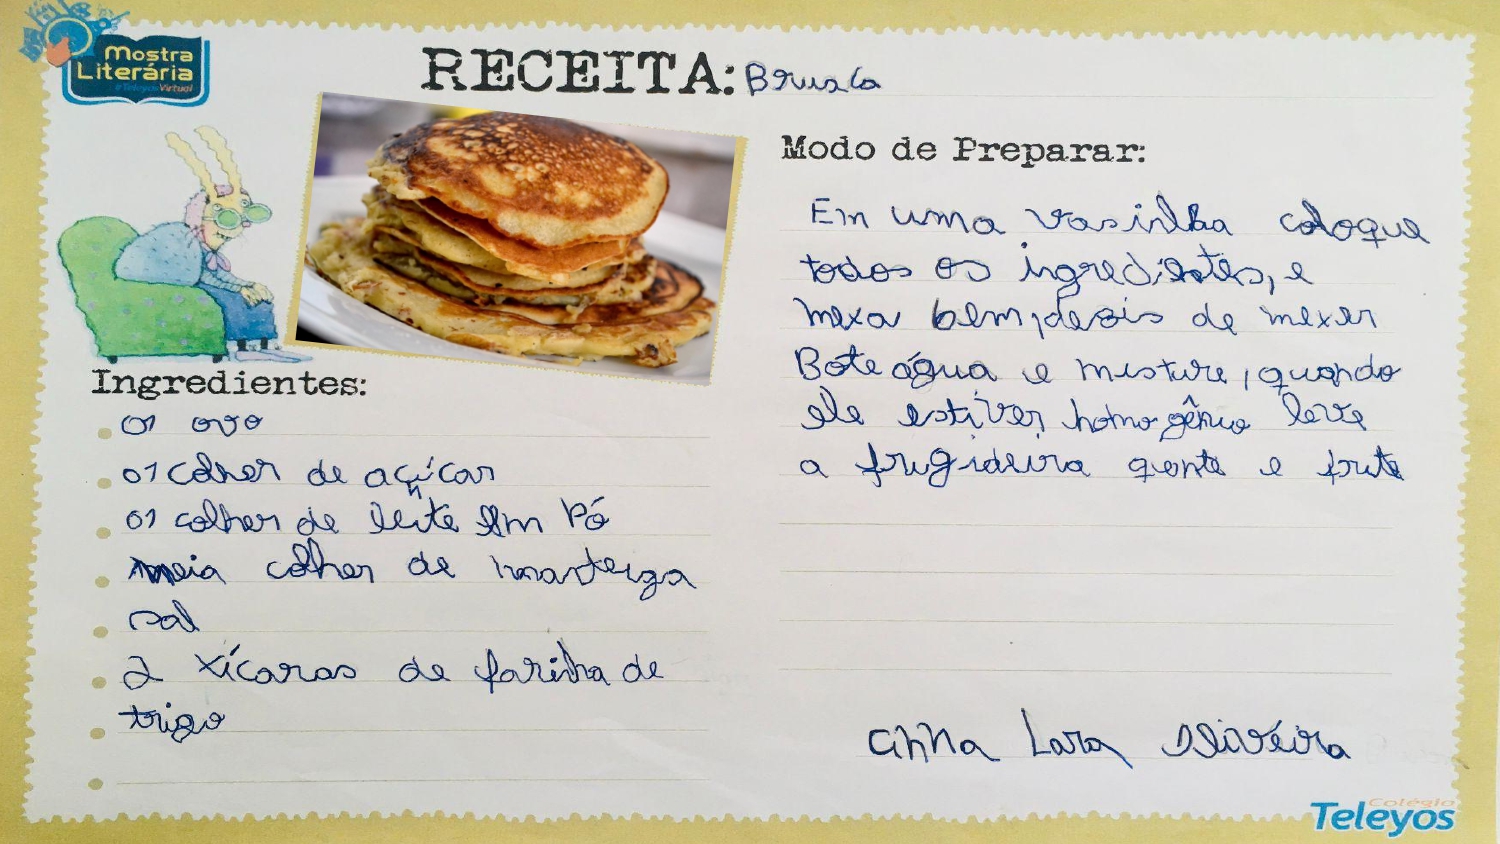 Mostra
Literária
#TeleyosVirtual
RECEITA: Brusca
Ingredientes:
01 ovo
01 colher de açúcar
01 colher de leite em Pó
meia colher de manteiga
sal
2 xícaras de farinha de
trigo
Modo de Preparar:
Em uma vasinlha coloque
todos os ingredientes, e
mexa bem, depois de mexer
Bote água e misture, quando
ele estiver homogênio leve
a frigideira qente e frite
Anna Lara Oliveira
Colégio
Teleyos